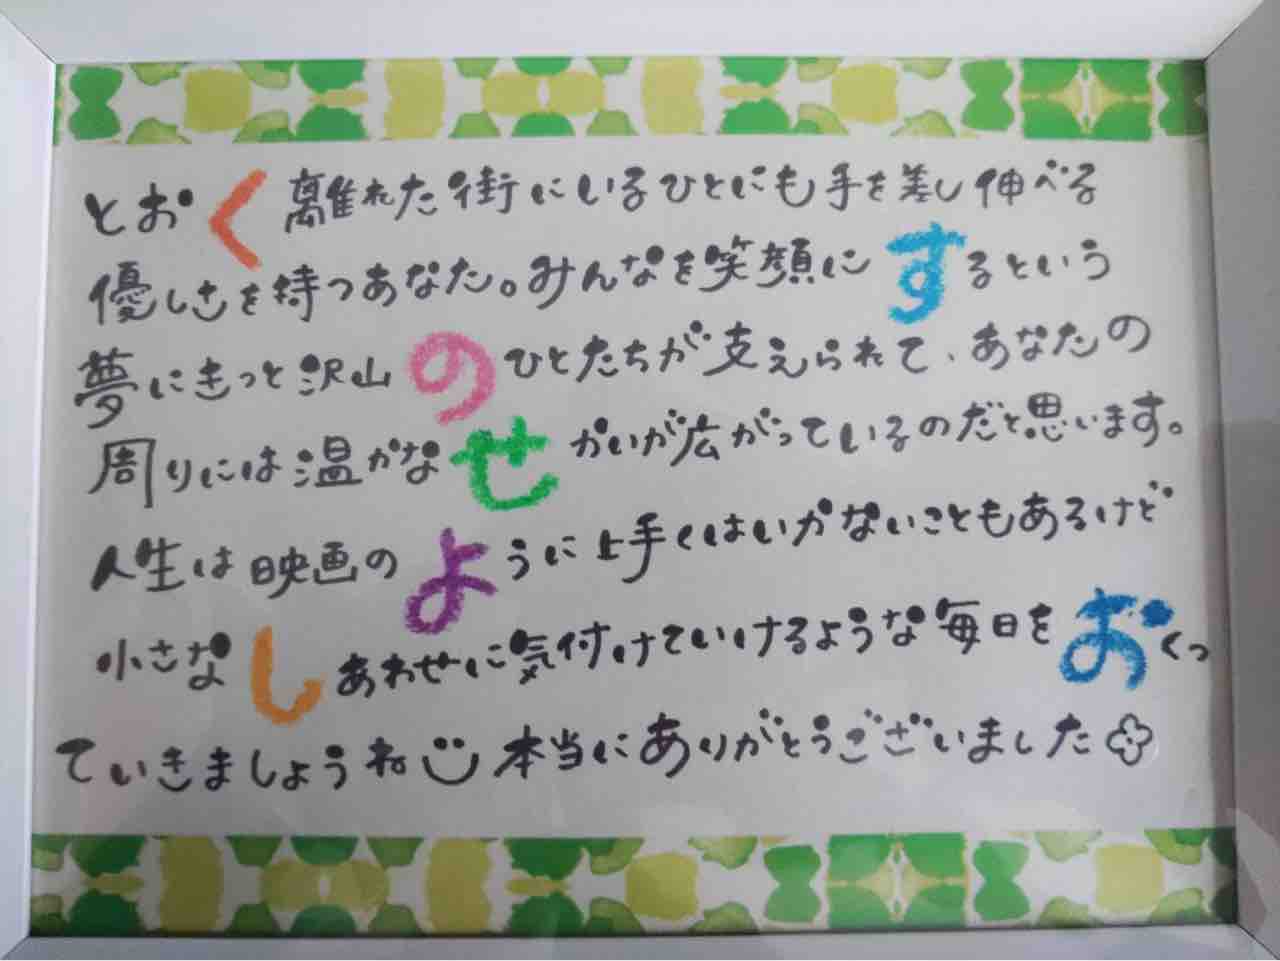 とおく離れた街にいるひとにも手を差し伸べる
優しさを持つあなた。みんなを笑顔にするという
夢にきっと沢山のひとたちが支えられて、あなたの
周りには温かなせかいが広がっているのだと思います。
人生は映画のように上手くはいかないこともあるけど
小さなしあわせに気付けていけるような毎日をおくっ
ていきましょうね 本当にありがとうございました